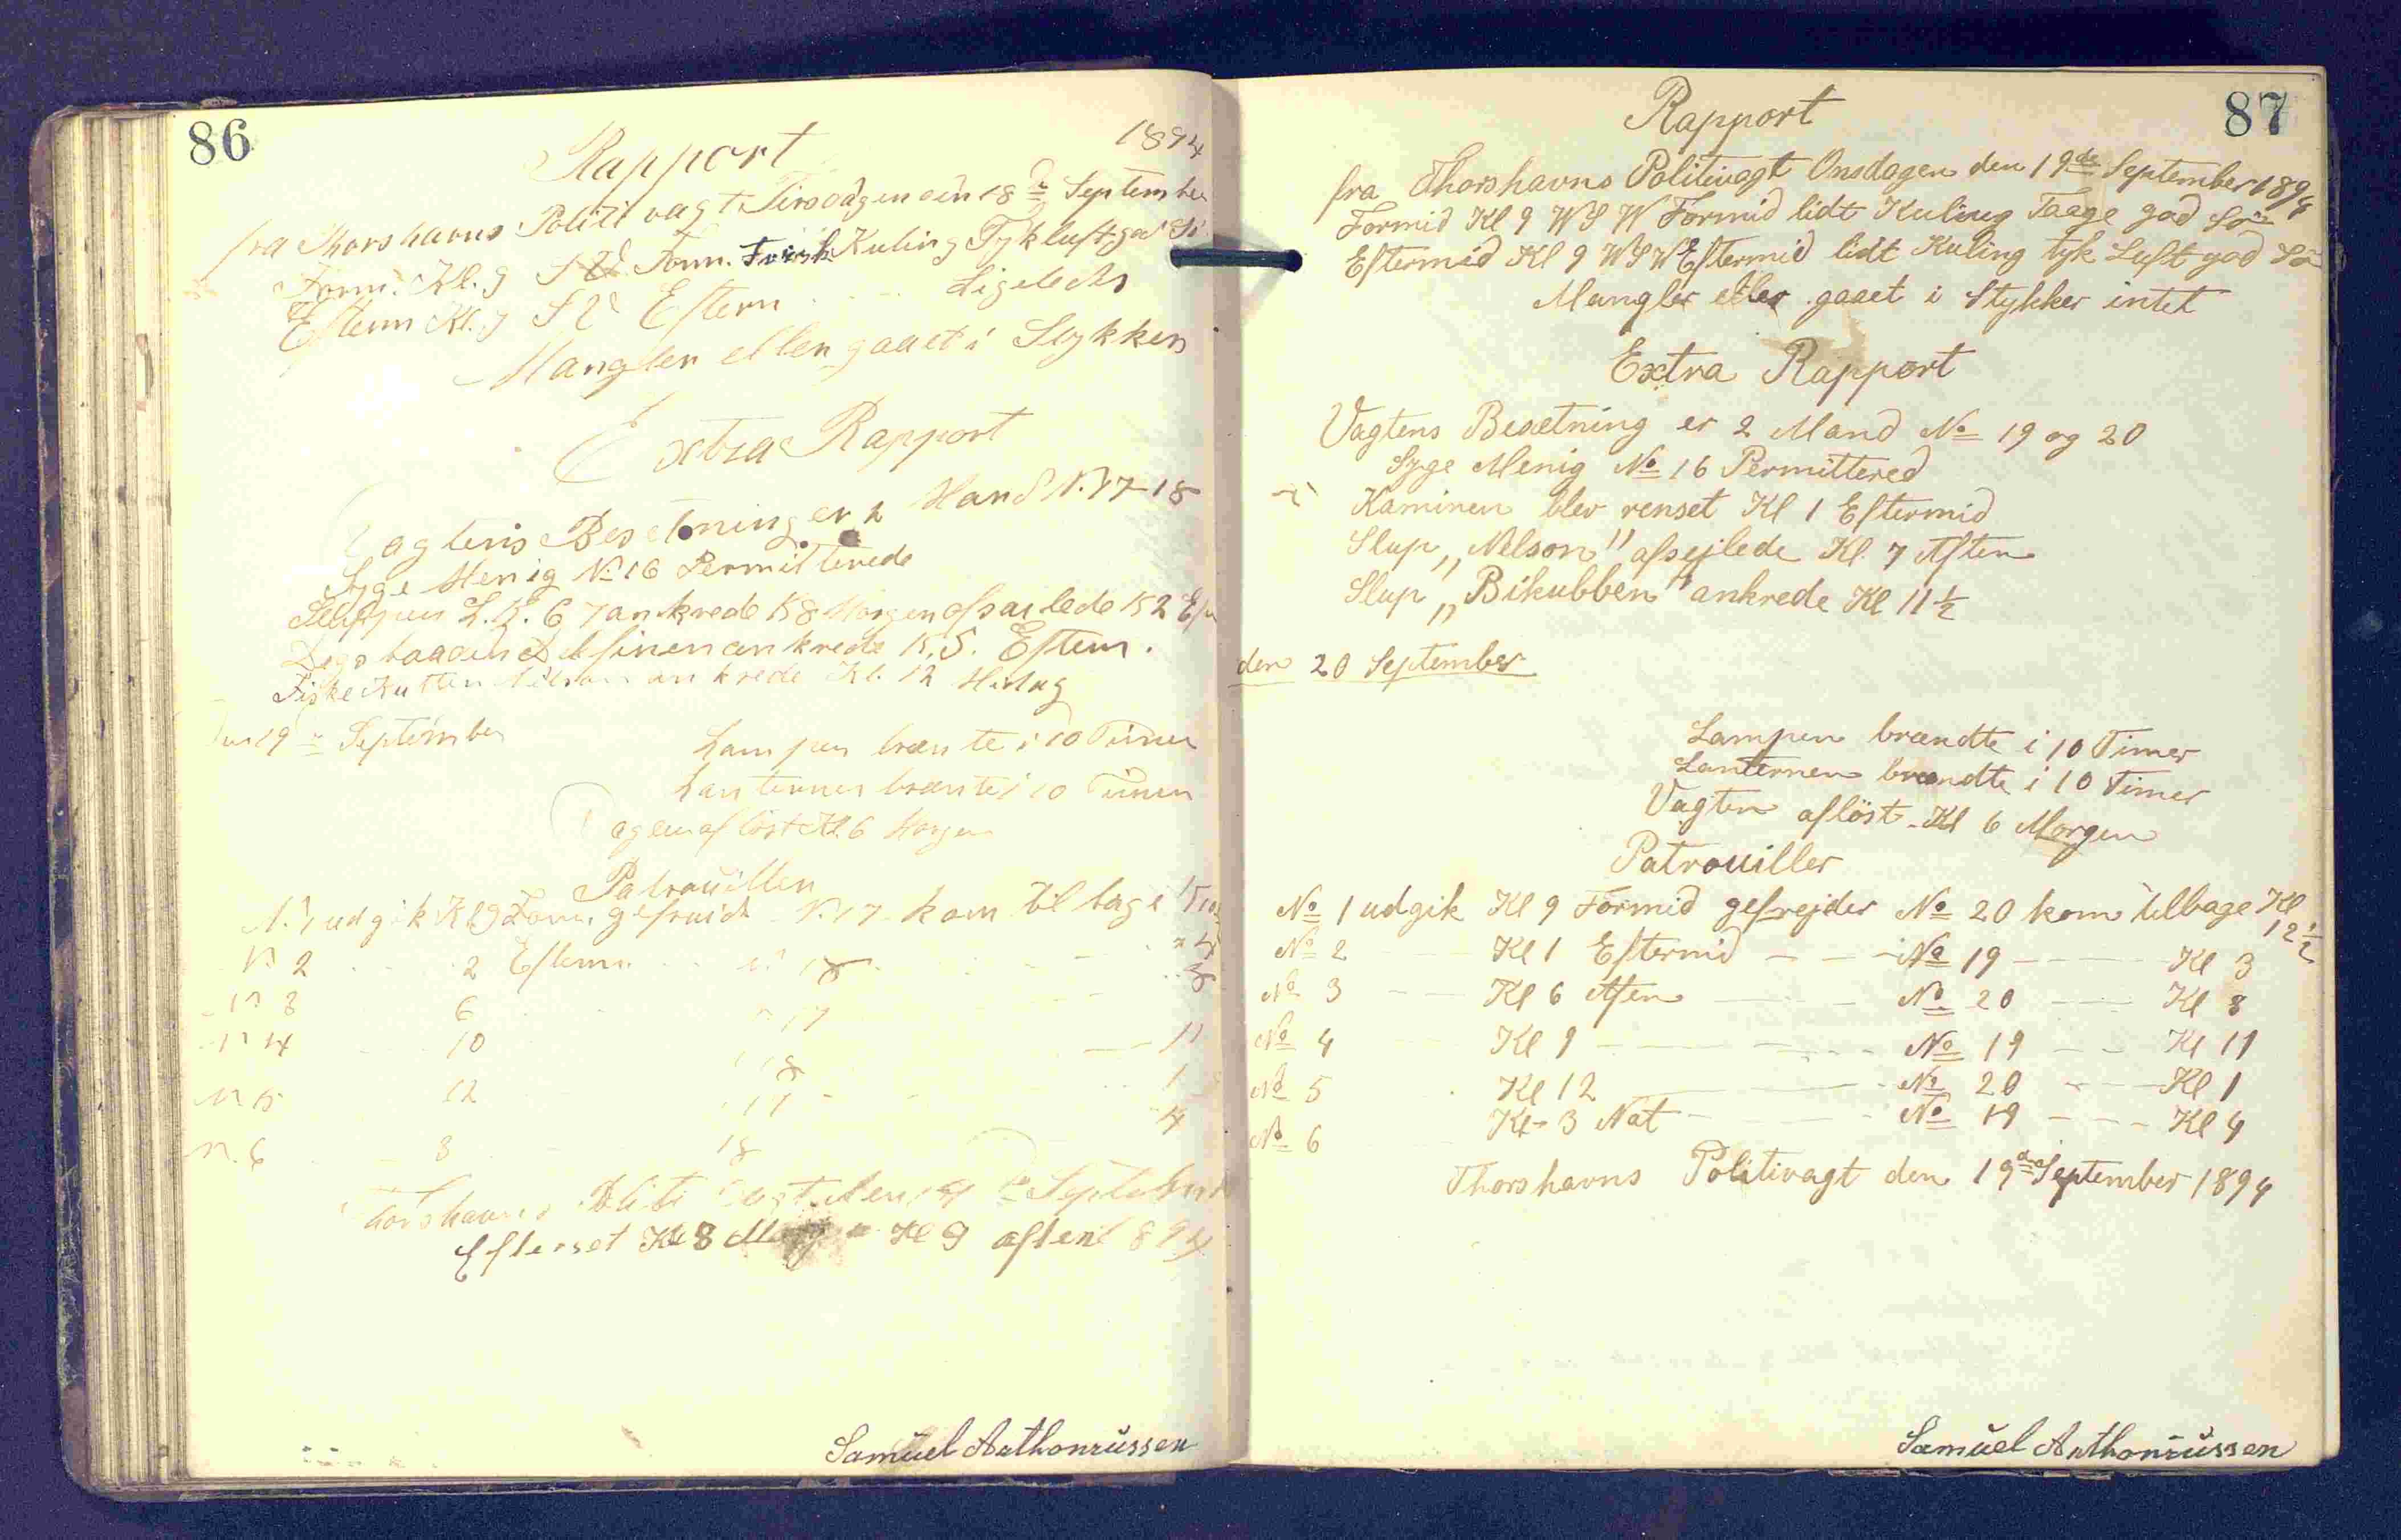 86
Rapport 1894
fra Thorshavns Politivagt Tirsdagen den 18de September
Form. Kl. 9 SV Form. Frisk Kuling Tyk luft god Sö
Efterm Kl. 9 SV Efterm - - - Ligeledes
Mangler eller gaaet i Stykker
Extra Rapport
Vagtens Besetning er 2 Mand N. 17-18
Syge Menig No 16 Permitterede
Sluppen L.K. 67 ankrede K 8 Morgen afsailede K 2 Ef
Degsbaaden Delfinen ankrede K. 5. Efterm.
Fiske Kutter Nilson ankrede Kl. 12 Midag
Den 19de September
Lampen brænte i 10 Timer
Lanternen brænte i 10 Timer
Vagten aflöst Kl. 6 Morgen
Patrouiller
N. 1 udgik Kl 9 Form. gefreider N. 17 kom tilbage K
N. 2 2 Efterm. N. 18
N. 3 6 17 8
N. 4 10 18 11
N. 5 12 17 1
N. 6 3 18 4
Thorshavns Politi den 19de September
Efterset Kl 8 Kl 9 aften 1894
Samüel Anthoniüssen
87
Rapport
fra Thorshavns Politivagt Onsdagen den 19de September 1894
Formid Kl 9 WSW Formid lidt Kuling Taage god Sö
Eftermid Kl 9 WSW Eftermid lidt Kuling tyk Luft god Sö
Mangler eller gaaet i Stykker intet
Extra Rapport
Vagtens Besætning er 2 Mand No 19 og 20
Syge Menig No 16 Permittered
Kaminen blev renset Kl 1 Eftermid
Slup „Nelson" afsejlede Kl. 7 Aften
Slup „Bikubben" ankrede Kl 11 ½
den 20 September
Lampen brændte i 10 Timer
Lanternen brændte i 10 Timer
Vagten aflöst Kl 6 Morgen
Patrouiller
No 1 udgik Kl 9 Formid gefrejder No 20 kom tilbage Kl 12 ½
No 2 - - Kl 1 Eftermid - - - No 19 - - - Kl 3
No 3 - - Kl 6 Afen - - - No 20 - - Kl 8
No 4 - - Kl 9 - - - No 19 - - Kl 11
No 5 Kl 12 - - - No 20 - - Kl 1
No 6 Kl 3 Nat - - - No 19 - - - Kl 4
Thorshavns Politivagt den 19de September 1894
Samüel Anthoniüssen